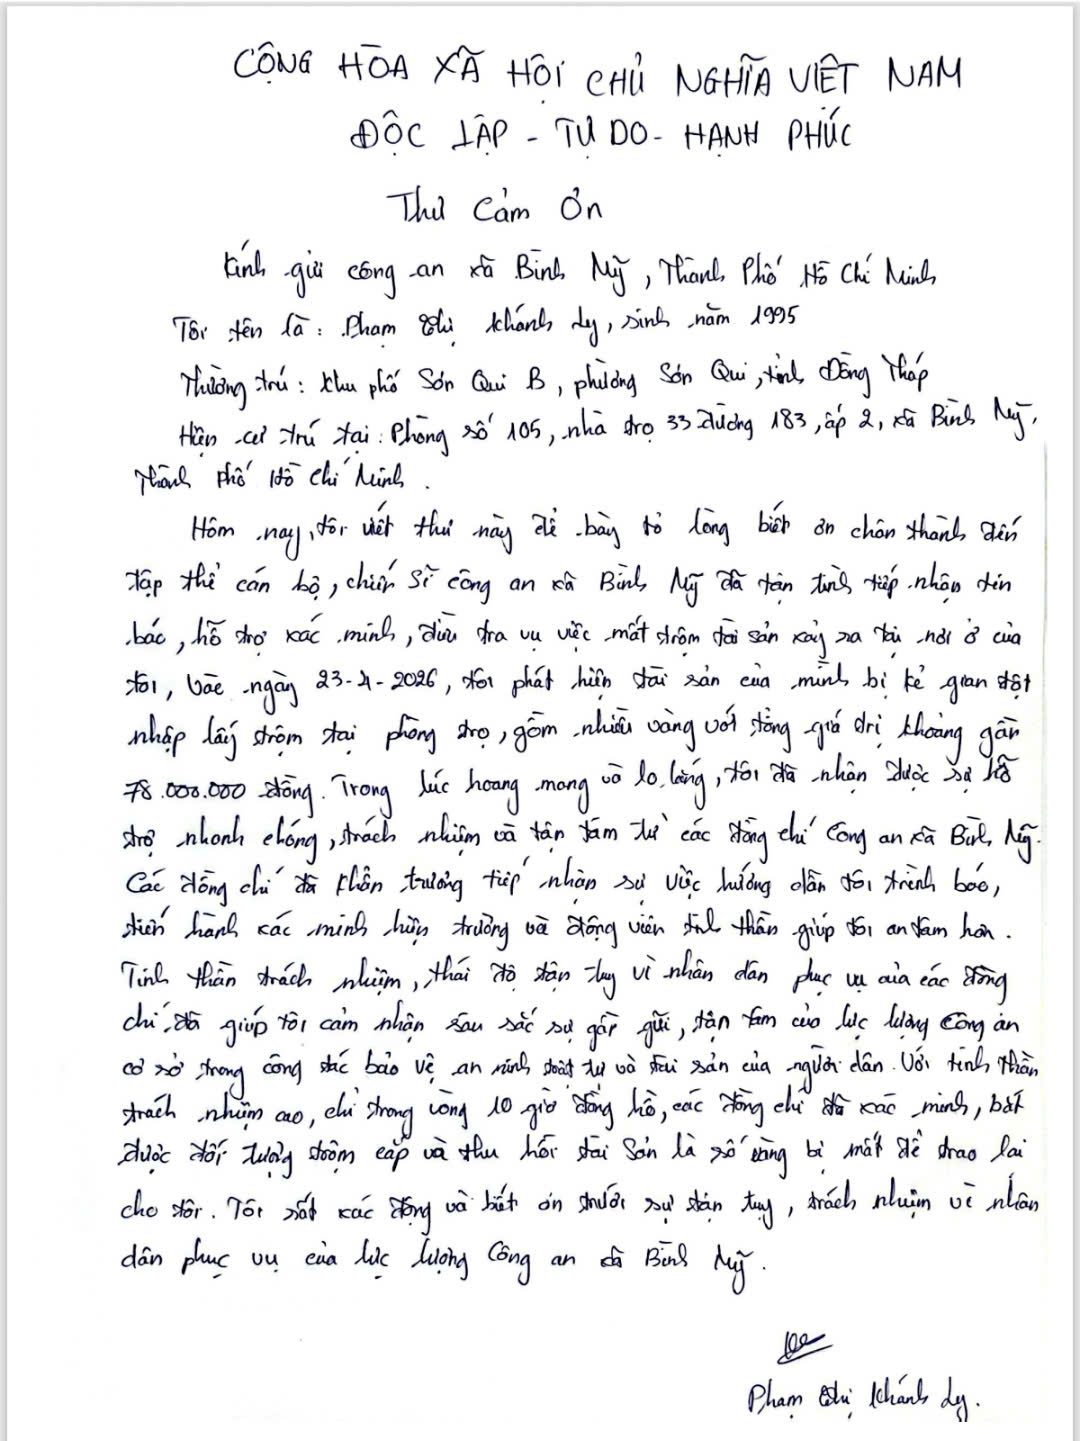 CỘNG HÒA XÃ HỘI CHỦ NGHĨA VIỆT NAM
ĐỘC LẬP - TỰ DO - HẠNH PHÚC
Thư Cảm Ơn
Kính gửi công an xã Bình Mỹ, Thành Phố Hồ Chí Minh
Tôi tên là: Phạm Thị Khánh Ly, sinh năm 1995
Thường trú: Khu phố Sơn Qui B, phường Sơn Qui, tỉnh Đồng Tháp
Hiện cư trú tại: Phòng số 105, nhà trọ 33 đường 183, ấp 2, xã Bình Mỹ,
Thành Phố Hồ Chí Minh.
Hôm nay, tôi viết thư này để bày tỏ lòng biết ơn chân thành đến
tập thể cán bộ, chiến sĩ công an xã Bình Mỹ đã tận tình tiếp nhận tin
báo, hỗ trợ xác minh, điều tra vụ việc mất trộm tài sản xảy ra tại nơi ở của
tôi, vào ngày 23-4-2026, tôi phát hiện tài sản của mình bị kẻ gian đột
nhập lấy trộm tại phòng trọ, gồm nhiều vàng với tổng giá trị khoảng gần
78.000.000 đồng. Trong lúc hoang mang và lo lắng, tôi đã nhận được sự hỗ
trợ nhanh chóng, trách nhiệm và tận tâm từ các đồng chí Công an xã Bình Mỹ.
Các đồng chí đã khẩn trương tiếp nhận sự việc hướng dẫn tôi trình báo,
tiến hành xác minh hiện trường và động viên tinh thần giúp tôi an tâm hơn.
Tinh thần trách nhiệm, thái độ tận tụy vì nhân dân phục vụ của các đồng
chí, đã giúp tôi cảm nhận sâu sắc sự gần gũi, tận tâm của lực lượng Công an
cơ sở trong công tác bảo vệ an ninh trật tự và tài sản của người dân. Với tinh thần
trách nhiệm cao, chỉ trong vòng 10 giờ đồng hồ, các đồng chí đã xác minh, bắt
được đối tượng trộm cắp và thu hồi tài sản là số vàng bị mất để trao lại
cho tôi. Tôi rất xúc động và biết ơn trước sự tận tụy, trách nhiệm vì nhân
dân phục vụ của lực lượng Công an xã Bình Mỹ.
Phạm Thị Khánh Ly.